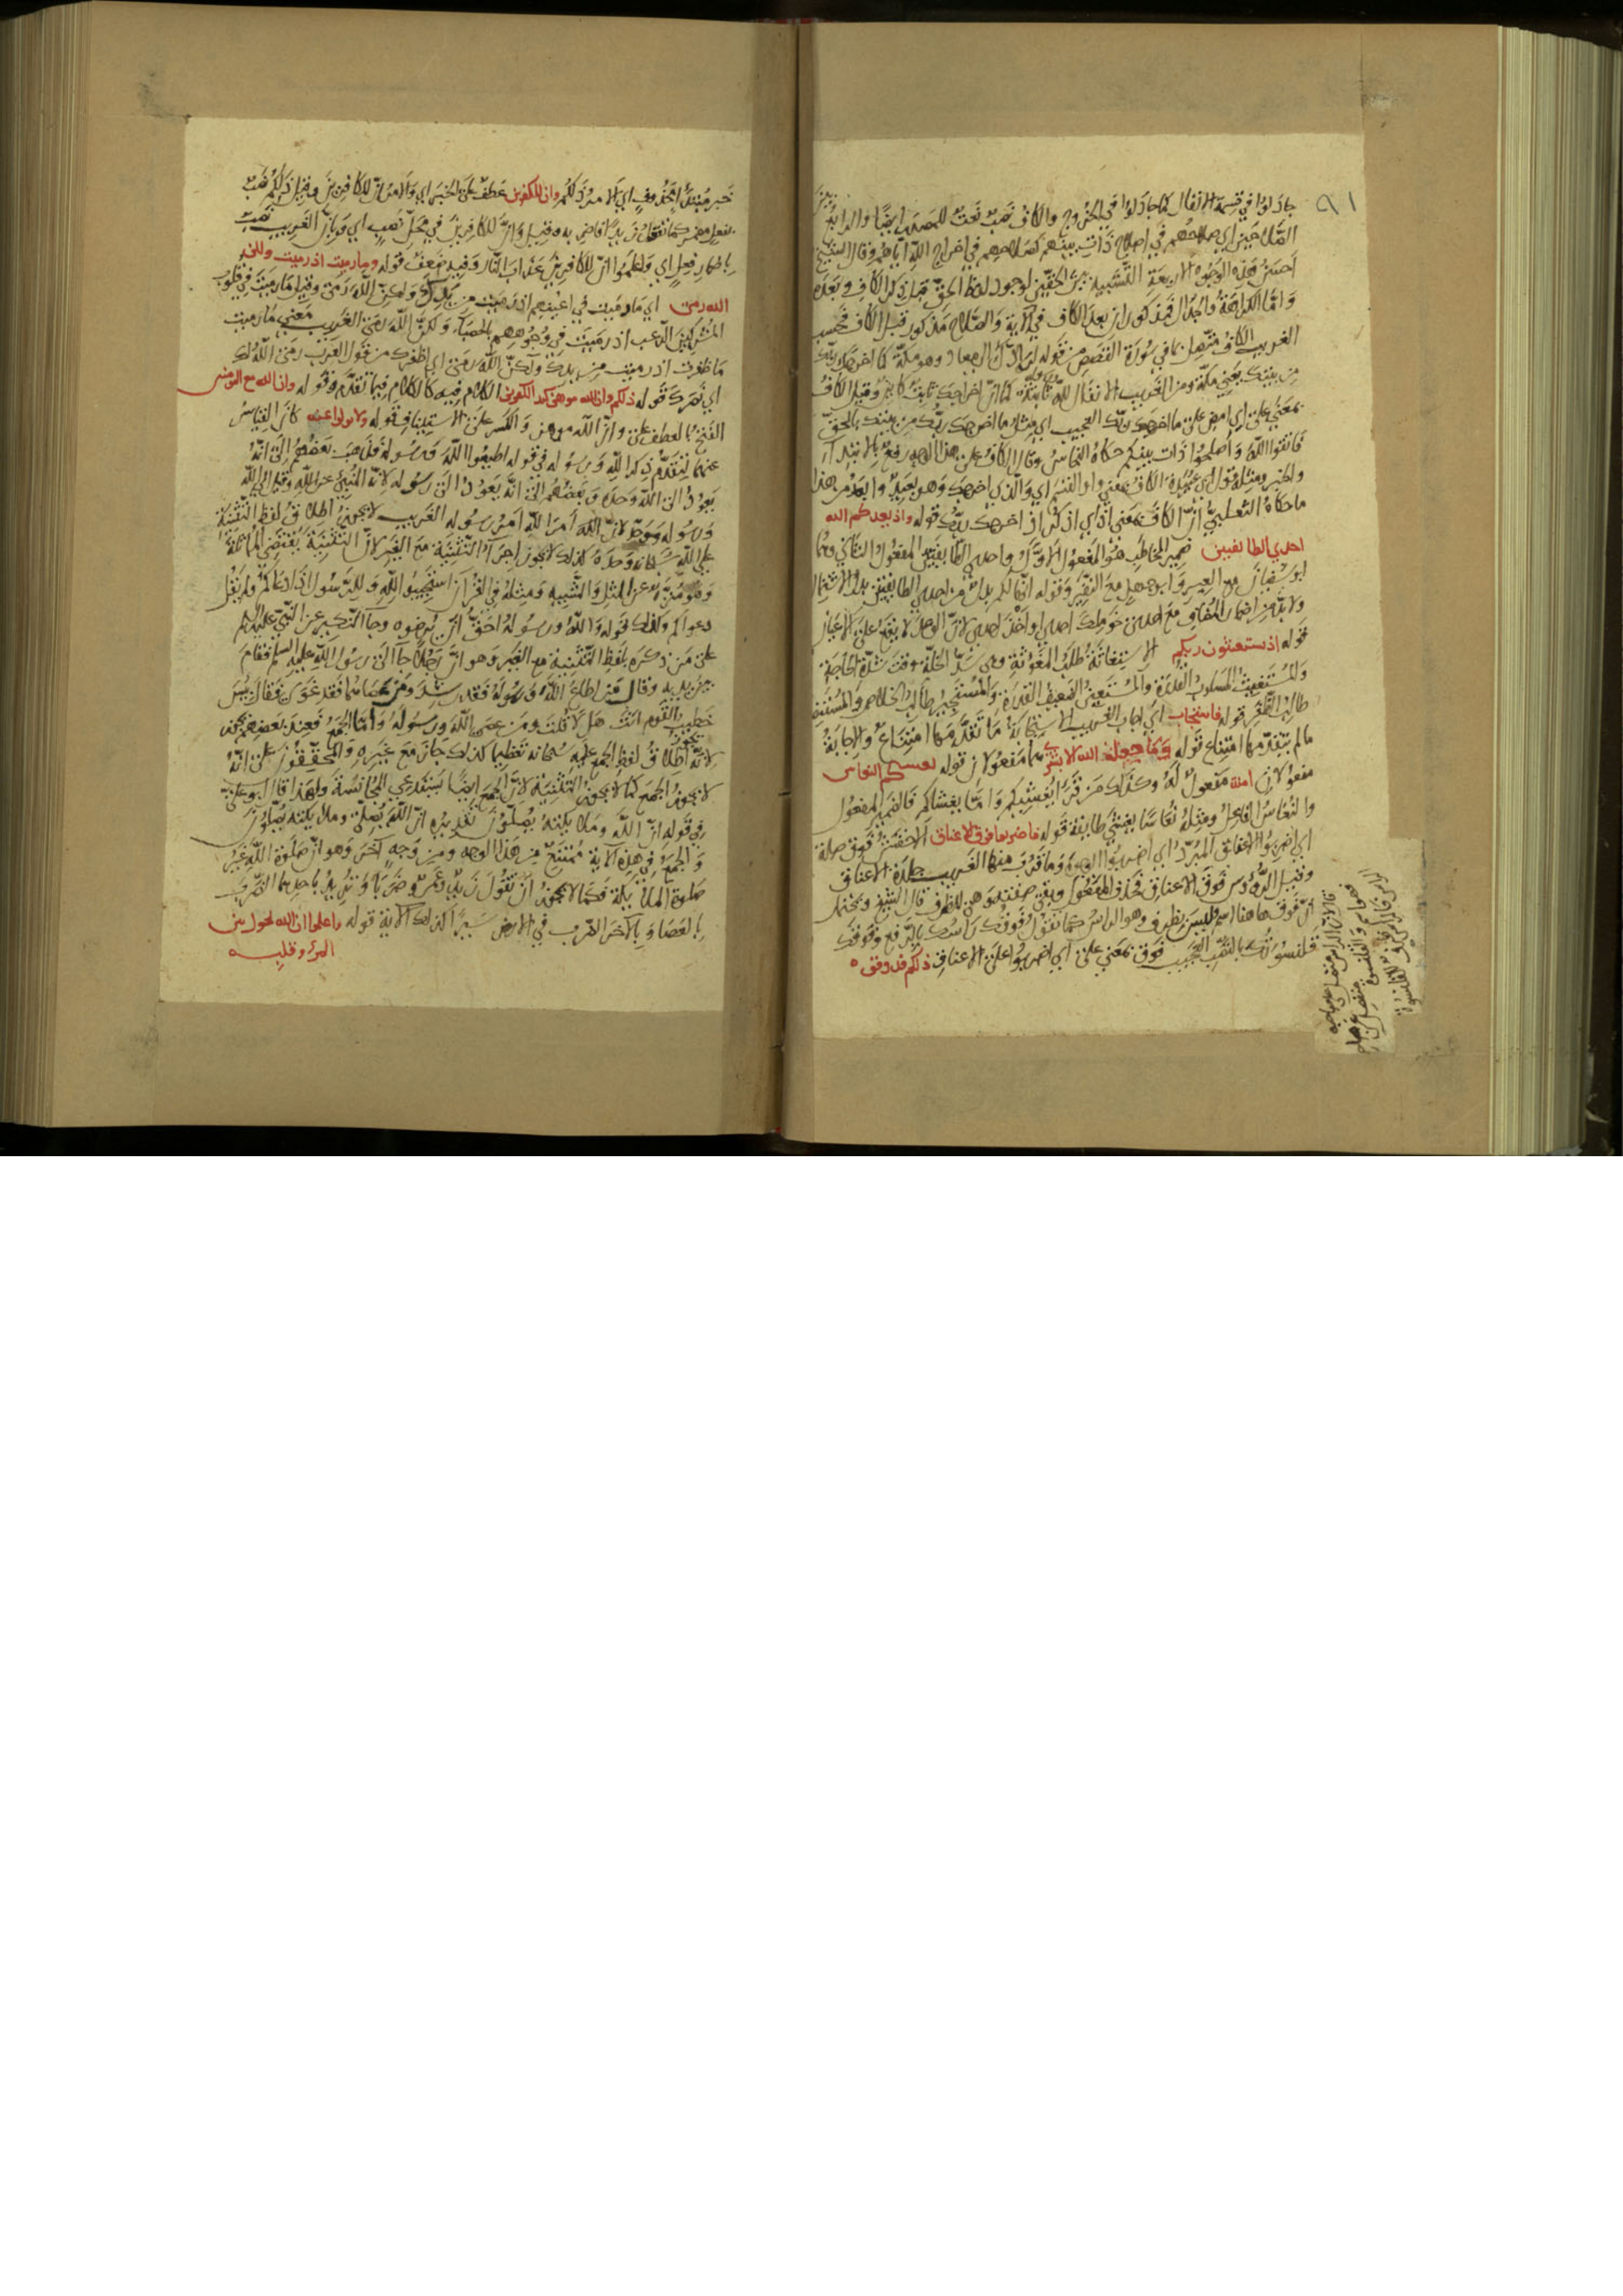 جادلوا في قسمة الانفال كما جادلوا في الخروج والكاف نصب نعت للمصدر ايضا والرابع
الصلاحين اي صلاحهم في اصلاح ذات بينهم كصلاحهم في اخراج الله اياهم وقال الشيخ
احسن هذه الوجوه الاربعة التشبيه بين الحقين لوجود لفظ الحق قبل ذكر الكاف وبعده
واما الكراهة والجدال فمذكوران بعد الكاف في الآية والصلاح مذكور قبل الكاف فحسب
الغريب الكاف متصل بما في سورة القصص من قوله لرادك الى معاد وهو مكة كما اخرجك ربك
من بيتك يعني مكة ومن الغريب الانفال لله ثابتة كما ان اخراجك ثابت كاين وقيل الكاف
بمعنى على اي امض على ما اخرجك ربك العجيب اي مثل ما اخرجك ربك من بيتك بالحق
فاتقوا الله واصلحوا ذات بينكم حكاه النحاس وقال الكاف على هذا الوجه رفع بالابتداء
والخبر ومثله قول ابي عبيدة الكاف بمعنى واو القسم اي والذي اخرجك وهو بعيد وابعد من هذا
ما حكاه الثعلبي ان الكاف بمعنى اذ اي اذكر اذ اخرجك ربك قوله واذ يعدكم الله
احدى الطايفتين ضمير المخاطب هو المفعول الاول واحدى الطايفتين المفعول الثاني وهما
ابو سفيان مع العير وابو جهل مع النفير وقوله انها لكم بدل من احدى الطايفتين بدل الاشتمال
ولا بد من اضمار المضاف مع احدى نحو ملك احدى او اخذ احدى لان الوعد لا يقع على الاعيان
قوله اذ تستغيثون ربكم الاستغاثة طلب المغوثة وهي سد الخلة وقت شدة الحاجة
والمستغيث المسلوب القدرة والمستعين الضعيف القدرة والمستجير طالب الخلاص والمستنصر
طالب الظفر قوله فاستجاب اي اجاب الغريب الاستجابة ما تقدمها امتناع والاجابة
ما لم يتقدمها امتناع قوله وما جعله الله الا بشرى هما مفعولان قوله يغشيكم النعاس
مفعولان امنة مفعول له وكذلك من قرا يغشيكم واما يغشاكم فالضمير المفعول
والنعاس الفاعل ومثله نعاسا يغشى طايفة قوله فاضربوا فوق الاعناق الاخفش فوق صلة
اي اضربوا الاعناق المبرد اي اضربوا الوجوه وما قرب منها الغريب جلدة الاعناق
وقيل الرؤوس فوق الاعناق فحذف المفعول وبقي صفته وهي للظرف قال الشيخ ويحتمل
ان فوق هاهنا اسم وليس بظرف وهو الراس كما تقول فوقك راسك بالرفع وفوقك
قلنسوتك بالنصب العجيب فوق بمعنى على اي اضربوا على الاعناق ذلكم فذوقوه
خبر مبتدا محذوف اي الامر ذلكم وان للكفرين عطف على الخبر اي والامر ان للكافرين وقيل ذلكم نصب
بفعل مضمر كما تقول زيدا فاضربه وقيل وان للكافرين في محل نصب اي وبان الغريب نصب
باضمار فعل اي واعلموا ان للكافرين عذاب النار وفيه ضعف قوله وما رميت اذ رميت ولكن
الله رمى اي ما رميت في اعينهم اذ رميت من يدك ولكن الله رمى وقيل ما رميت في قلوب
المشركين الرعب اذ رميت في وجوههم بالحصباء ولكن الله رمى الغريب معنى ما رميت
ما ظفرت اذ رميت من يدك ولكن الله رمى اي اظفرك من قول العرب رمى الله لك
اي نصرك قوله ذلكم وان الله موهن كيد الكفرين الكلام فيه كالكلام فيما تقدم وقوله وان الله مع المومنين
الفتح بالعطف على وان الله موهن والكسر على الاستيناف قوله ولا تولوا عنه كان القياس
عنهما لتقدم ذكر الله ورسوله في قوله اطيعوا الله ورسوله فذهب بعضهم الى انه
يعود الى الله وحده وبعضهم الى انه يعود الى رسوله لانه المنبئ عن الله وقيل الى الله
ورسوله ووحد لان امر الله امر رسوله الغريب لا يجوز اطلاق لفظ التثنية
على الله سبحانه وحده كذلك لا يجوز اجراء التثنية مع الغير لان التثنية يقتضي المماثلة
وهو منزه عن المثل والشبيه ومثله في القران استجيبوا لله وللرسول اذا دعاكم ولم يقل
دعواكم وكذلك قوله والله ورسوله احق ان يرضوه وجا النكير عن النبي عليه السلم
على من ذكره بلفظ التثنية مع الغير وهو ان رجلا جا الى رسول الله عليه السلم فقام
بين يديه وقال من اطاع الله ورسوله فقد رشد ومن عصاهما فقد غوى فقال بيس
خطيب القوم انت هل لا قلت ومن عصى الله ورسوله واما الجمع فعند بعضهم يجوز
لانه يجوز اطلاق لفظ الجمع عليه سبحانه تعظيما كذلك جاز مع غيره والمحققون على انه
لا يجوز الجمع كما لا يجوز التثنية لان الجمع ايضا يستدعي المجانسة ولهذا قال ابو علي
في قوله ان الله وملايكته يصلون تقديره ان الله يصلي وملايكته يصلون
والجمع في هذه الآية ممتنع من هذا الوجه ومن وجه آخر وهو ان صلوة الله غير
صلوة الملايكة فكما لا يجوز ان تقول زيد وعمرو ضربا وتريد باحدهما الضرب
بالعصا وبالآخر الضرب في الارض سيرا كذلك الآية قوله واعلموا ان الله يحول بين
المرء وقلبه